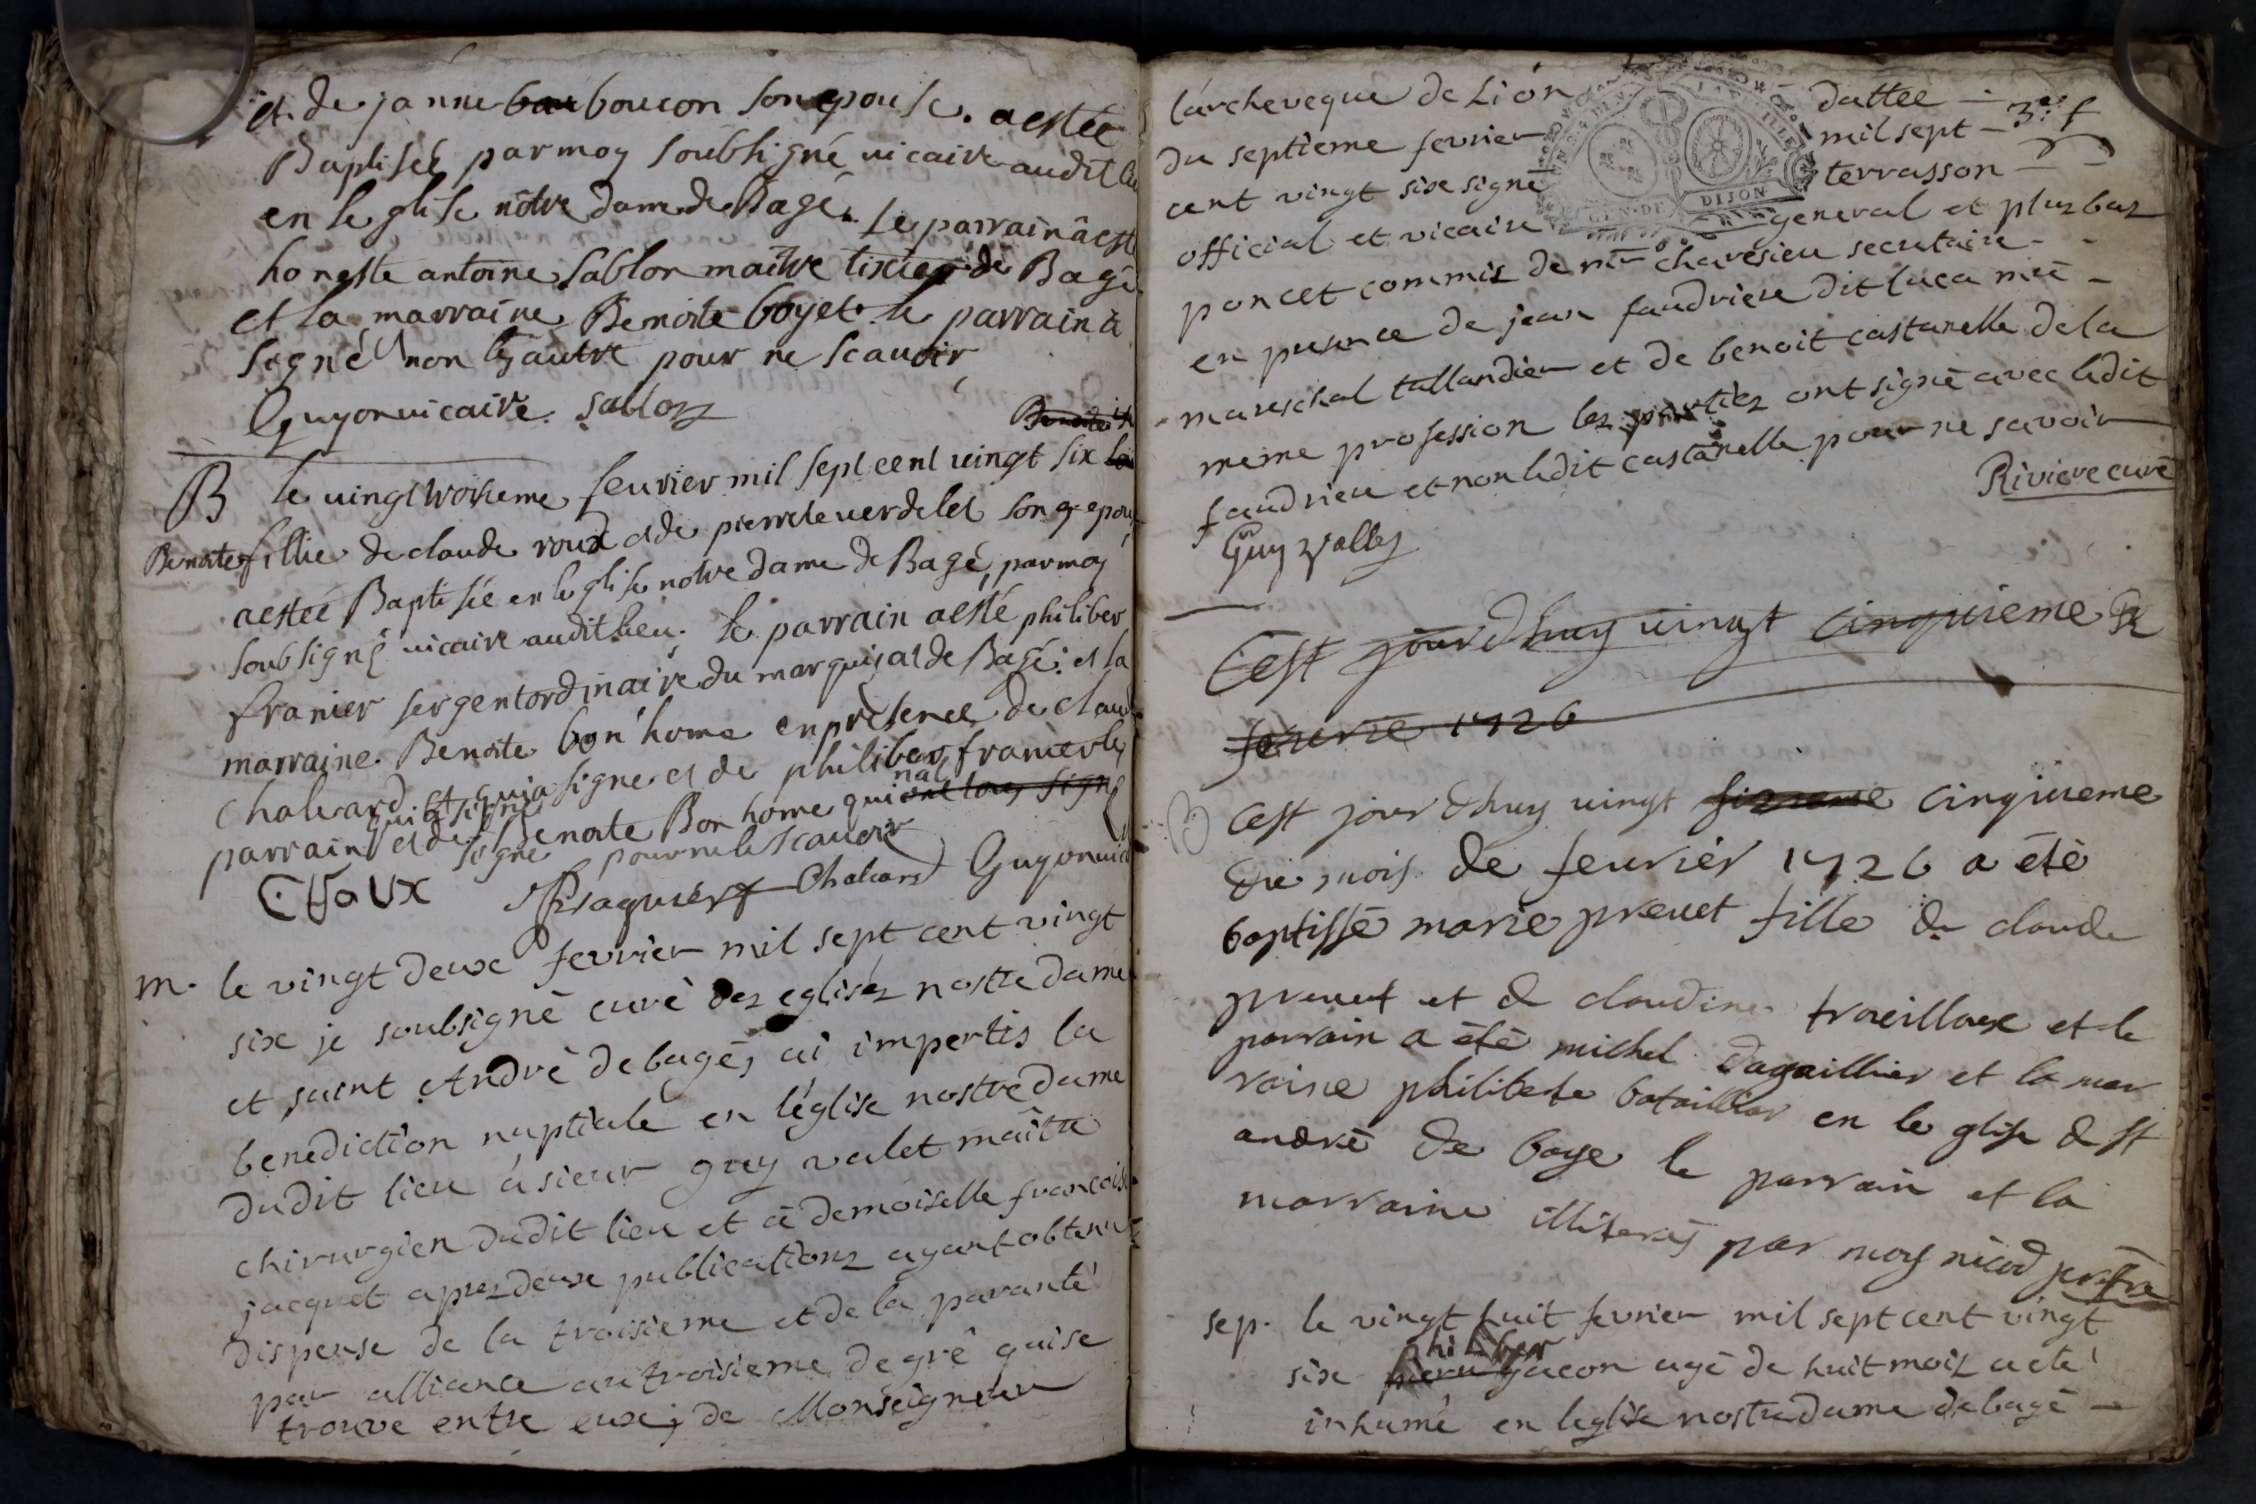 et de janne bau boucon son epouse. a estée
Baptisée par moy soubsigné vicaire audit lieu
en leglise nôtre dame de Bagé. le parrain a esté
honeste antoine sablon maître tixier de Bagé
et la marraine Benoite boyet. le parrain a
signé non les autre pour ne scauoir
Guyon uicaire. sablon
Benoite
B le uingt troisieme feurier mil sept cent uingt six la
Benoite fillie de claude roux et de pierrete uerdelet son epouse
a estée Baptisée en leglise notre dame de Bagé, par moy
soubsigné uicaire audit lieu. le parrain a esté philiber
franier sergent ordinaire du marquisat de Bagé: et la
marraine. Benoite bon'home en présence de claude
chaluard et qui a signe et de philiber franier le
parrain qui a signé et de Benoite Bon home qui ont tous signé
signé pour ne le scauoir
C roux Chaluard Guyon uic
m. le vingt deux fevrier mil sept cent vingt
six je soubsigné curé des eglises nostre dame
et saint André de bagé, ai impertis la
benediction nuptiale en l'église nostre dame
dudit lieu a sieur guy valet maître
chirurgien dudit lieu et a demoiselle francoise
jacquet apres deux publications ayant obtenu
dispense de la troisieme et de la paranté
par alliance au troisieme degré qui se
trouve entre eux, de Monseigneur
l'archeveque de Lion dattee
du septieme fevrier mil sept
cent vingt six signé terrasson
official et vicaire general et plus bas
poncet commis de mr charesieu secretaire
en presence de jean faudriere dit luca me
mareschal tallandier et de benoit castanelle de la
meme profession les parties ont signé avec ledit
faudrieu et non ledit castanelle pour ne savoir
Riviere curé
Guy Vallet
GEN. DE DIJON
Cest jourdhuy uingt cinquieme
feurie 1726
B Cest jour dhuy uingt sixieme cinquieme
du mois de feurier 1726 a été
baptissé marie preuet fille de claude
preuet et de claudine traeilloux et le
parrain a été michel dagaillier et la mar
raine philiberte bataillar en le glise de st
andré de bage le parrain et la
marraine illiterés par moy nicod prestre
sep. le vingt huit fevrier mil sept cent vingt
six pierre philiber gacon agé de huit mois a eté
inhumé en leglise nostre dame de bagé